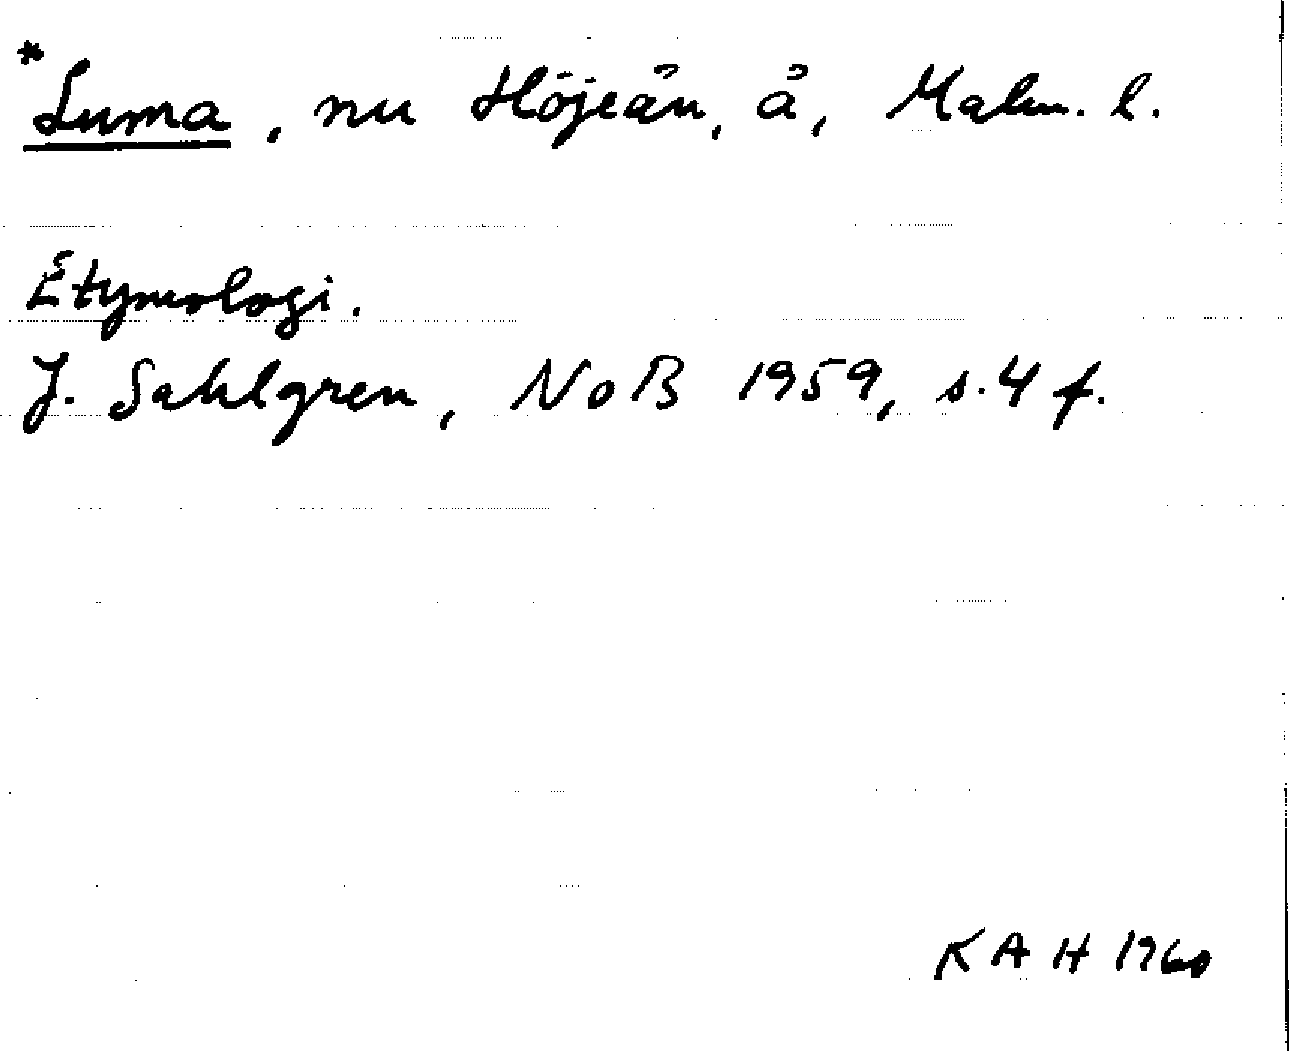 *Luma, nu Höjeån, å, Malm. l.
Etymologi.
J. Sahlgren, NoB 1959, s. 4 f.
KAH 1960